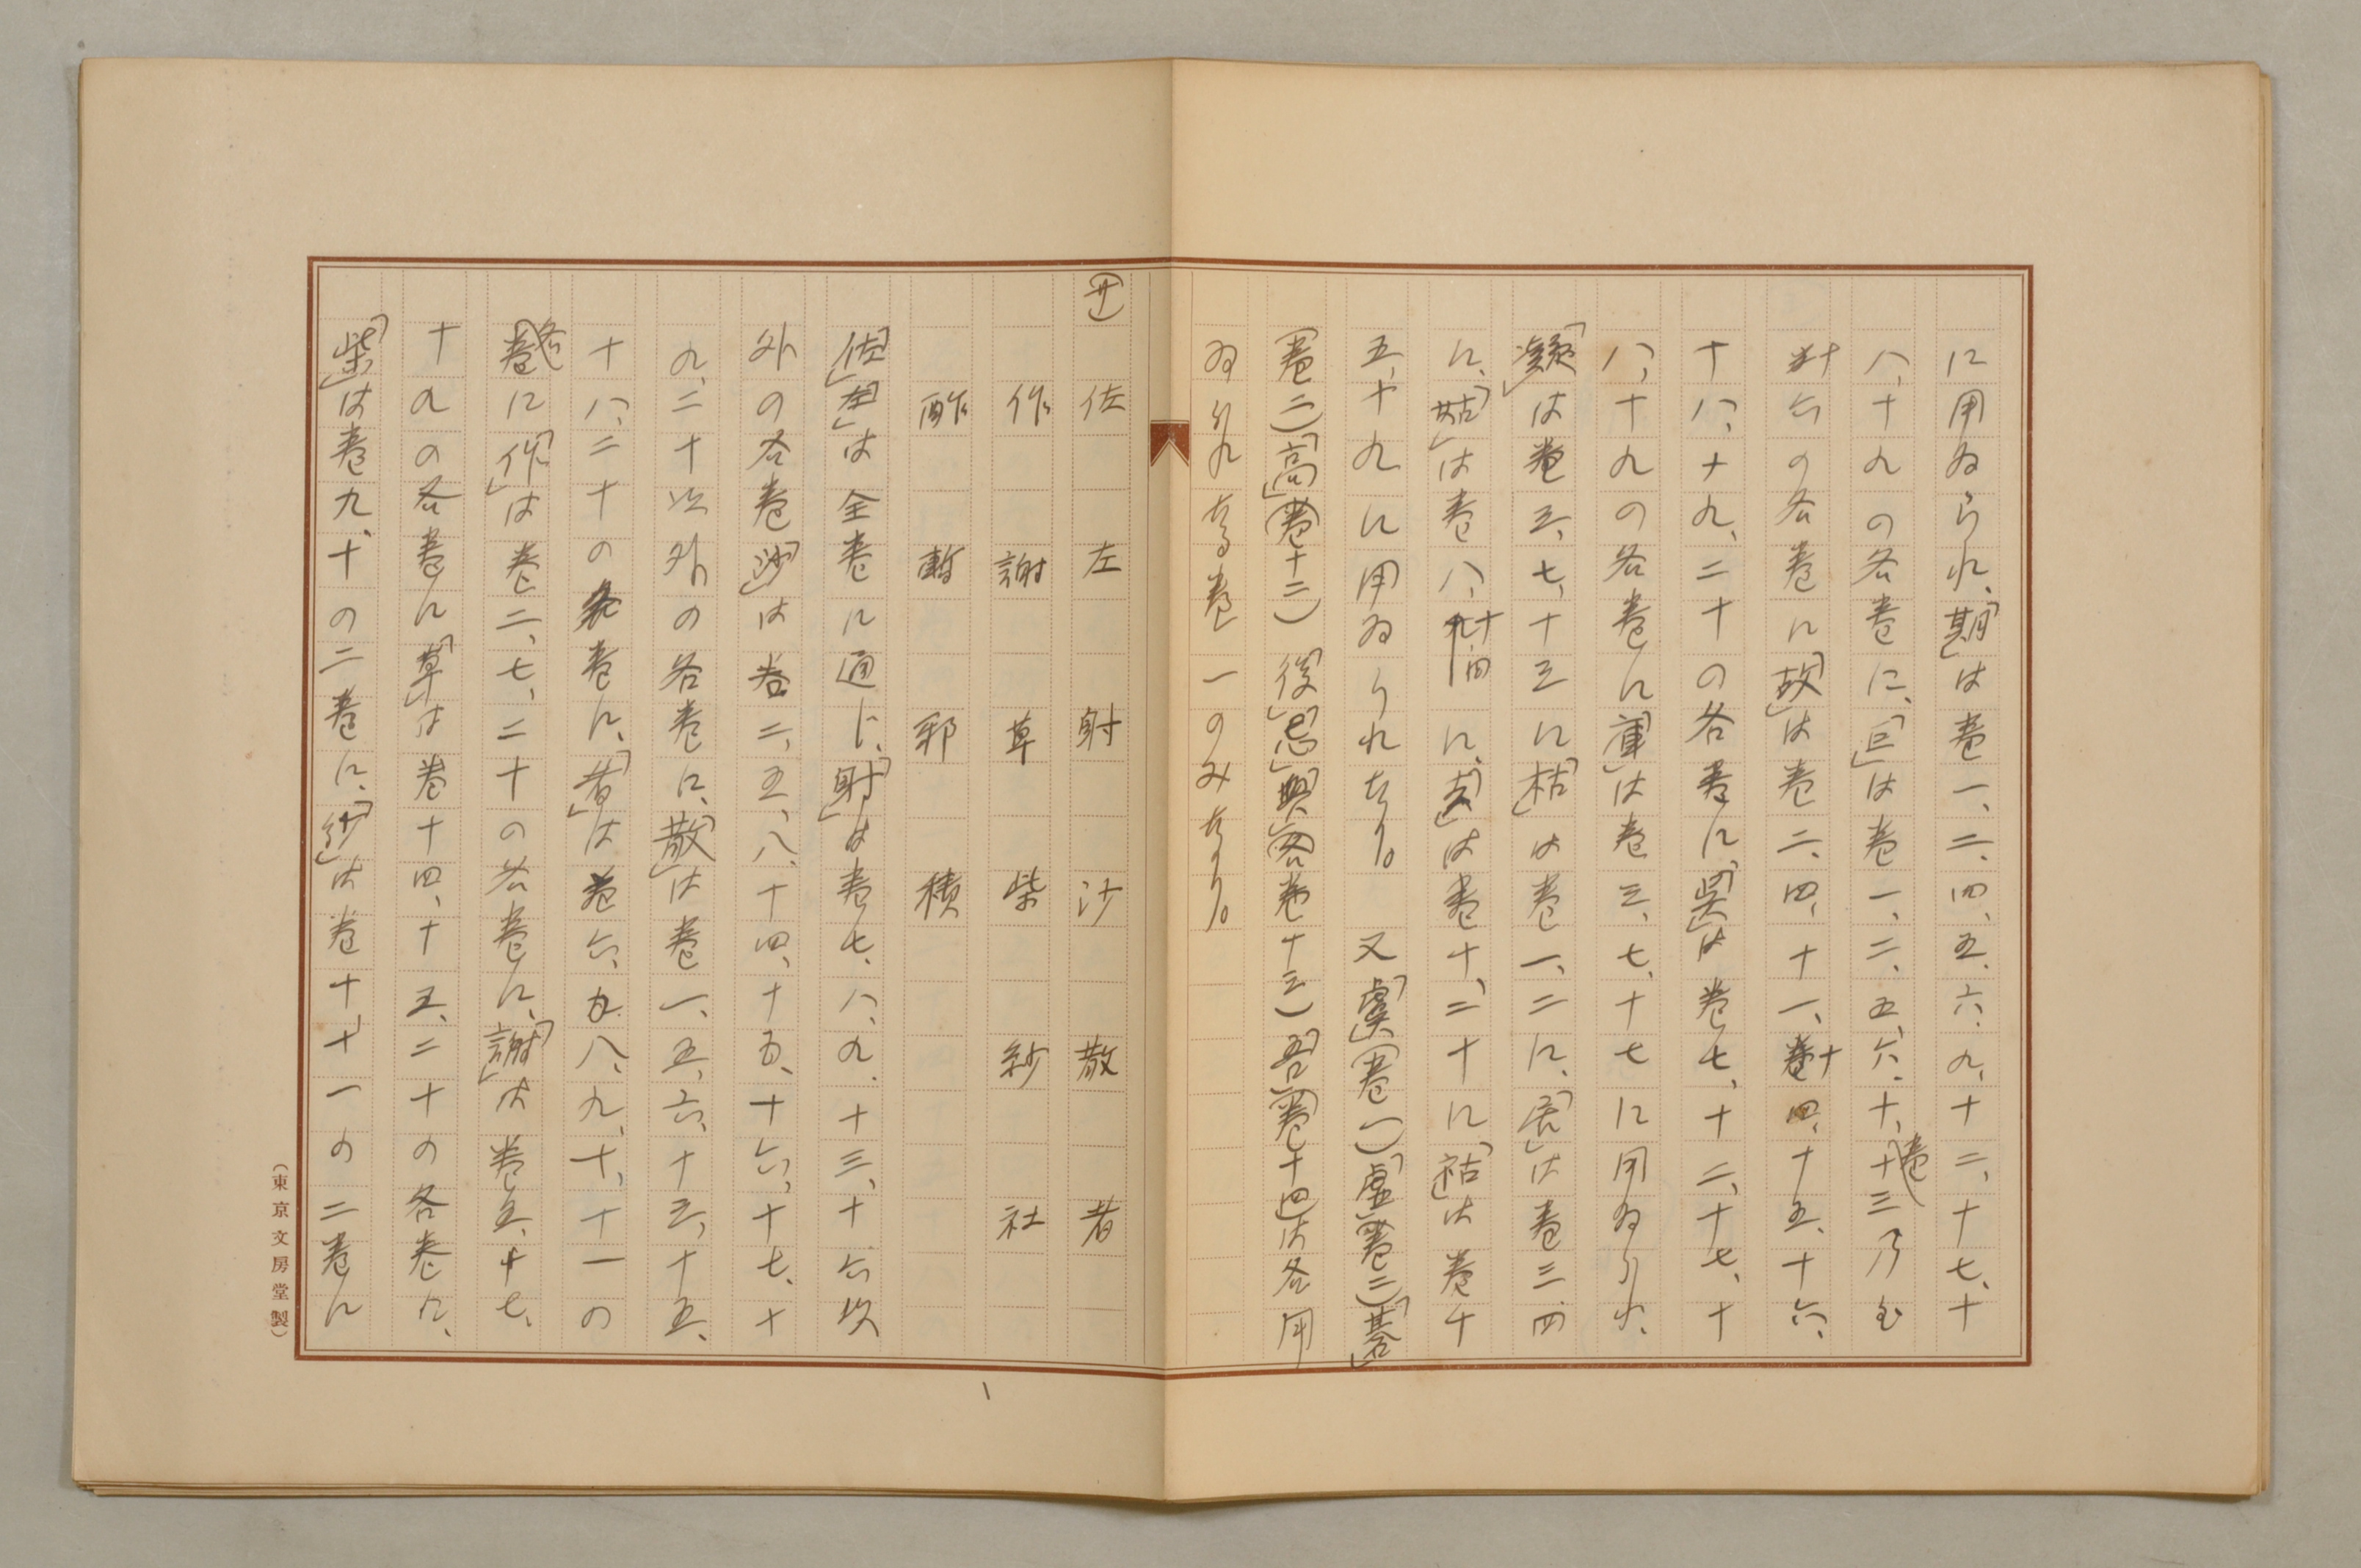 に用ゐられ、「期」は巻一、二、四、五、六、九、十二、十七、十
八、十九の各巻に、「巨」は巻一、二、五、六、十、巻十三乃至
十六の各巻に「故」は巻二、四、十一、十四、十五、十六、
十八、十九、二十の各巻に「呉」は巻七、十二、十七、十
八、十九の各巻に「庫」は巻三、七、十七に用ゐられ、
「凝」は巻三、七、十三に「枯」は巻一、二に、「居」は巻三、四
に、「姑」は巻八、十四に、「去」は巻十、二十に「祜」は巻十
五、十九に用ゐられたり。 又「虞」(巻一)「虚」(巻三)「碁」
(巻二)「高」(巻十二)「後」「忌」「興」「  」(巻十三)「吾」(巻十四)は各用
ゐられたる巻一のみなり。
(サ) 佐 左 射 沙 散 者
作 謝 草 柴 紗 社
酢 暫 邪 積
「佐」「左」は全巻に通じ、「射」は巻七、八、九、十三、十六以
外の各巻「沙」は巻二、五、八、十四、十五、十六、十七、十
九、二十以外の各巻に、「散」は巻一、五、六、十三、十五、
十八、二十の各巻に、「者」は巻六、八、九、十、十一の
各巻に「作」は巻二、七、二十の各巻に、「謝」は巻五、十七、
十九の各巻に「草」は巻十四、十五、二十の各巻に、
「柴」は巻九、十の二巻に、「紗」は巻十、十一の二巻に
(東京文房堂製)